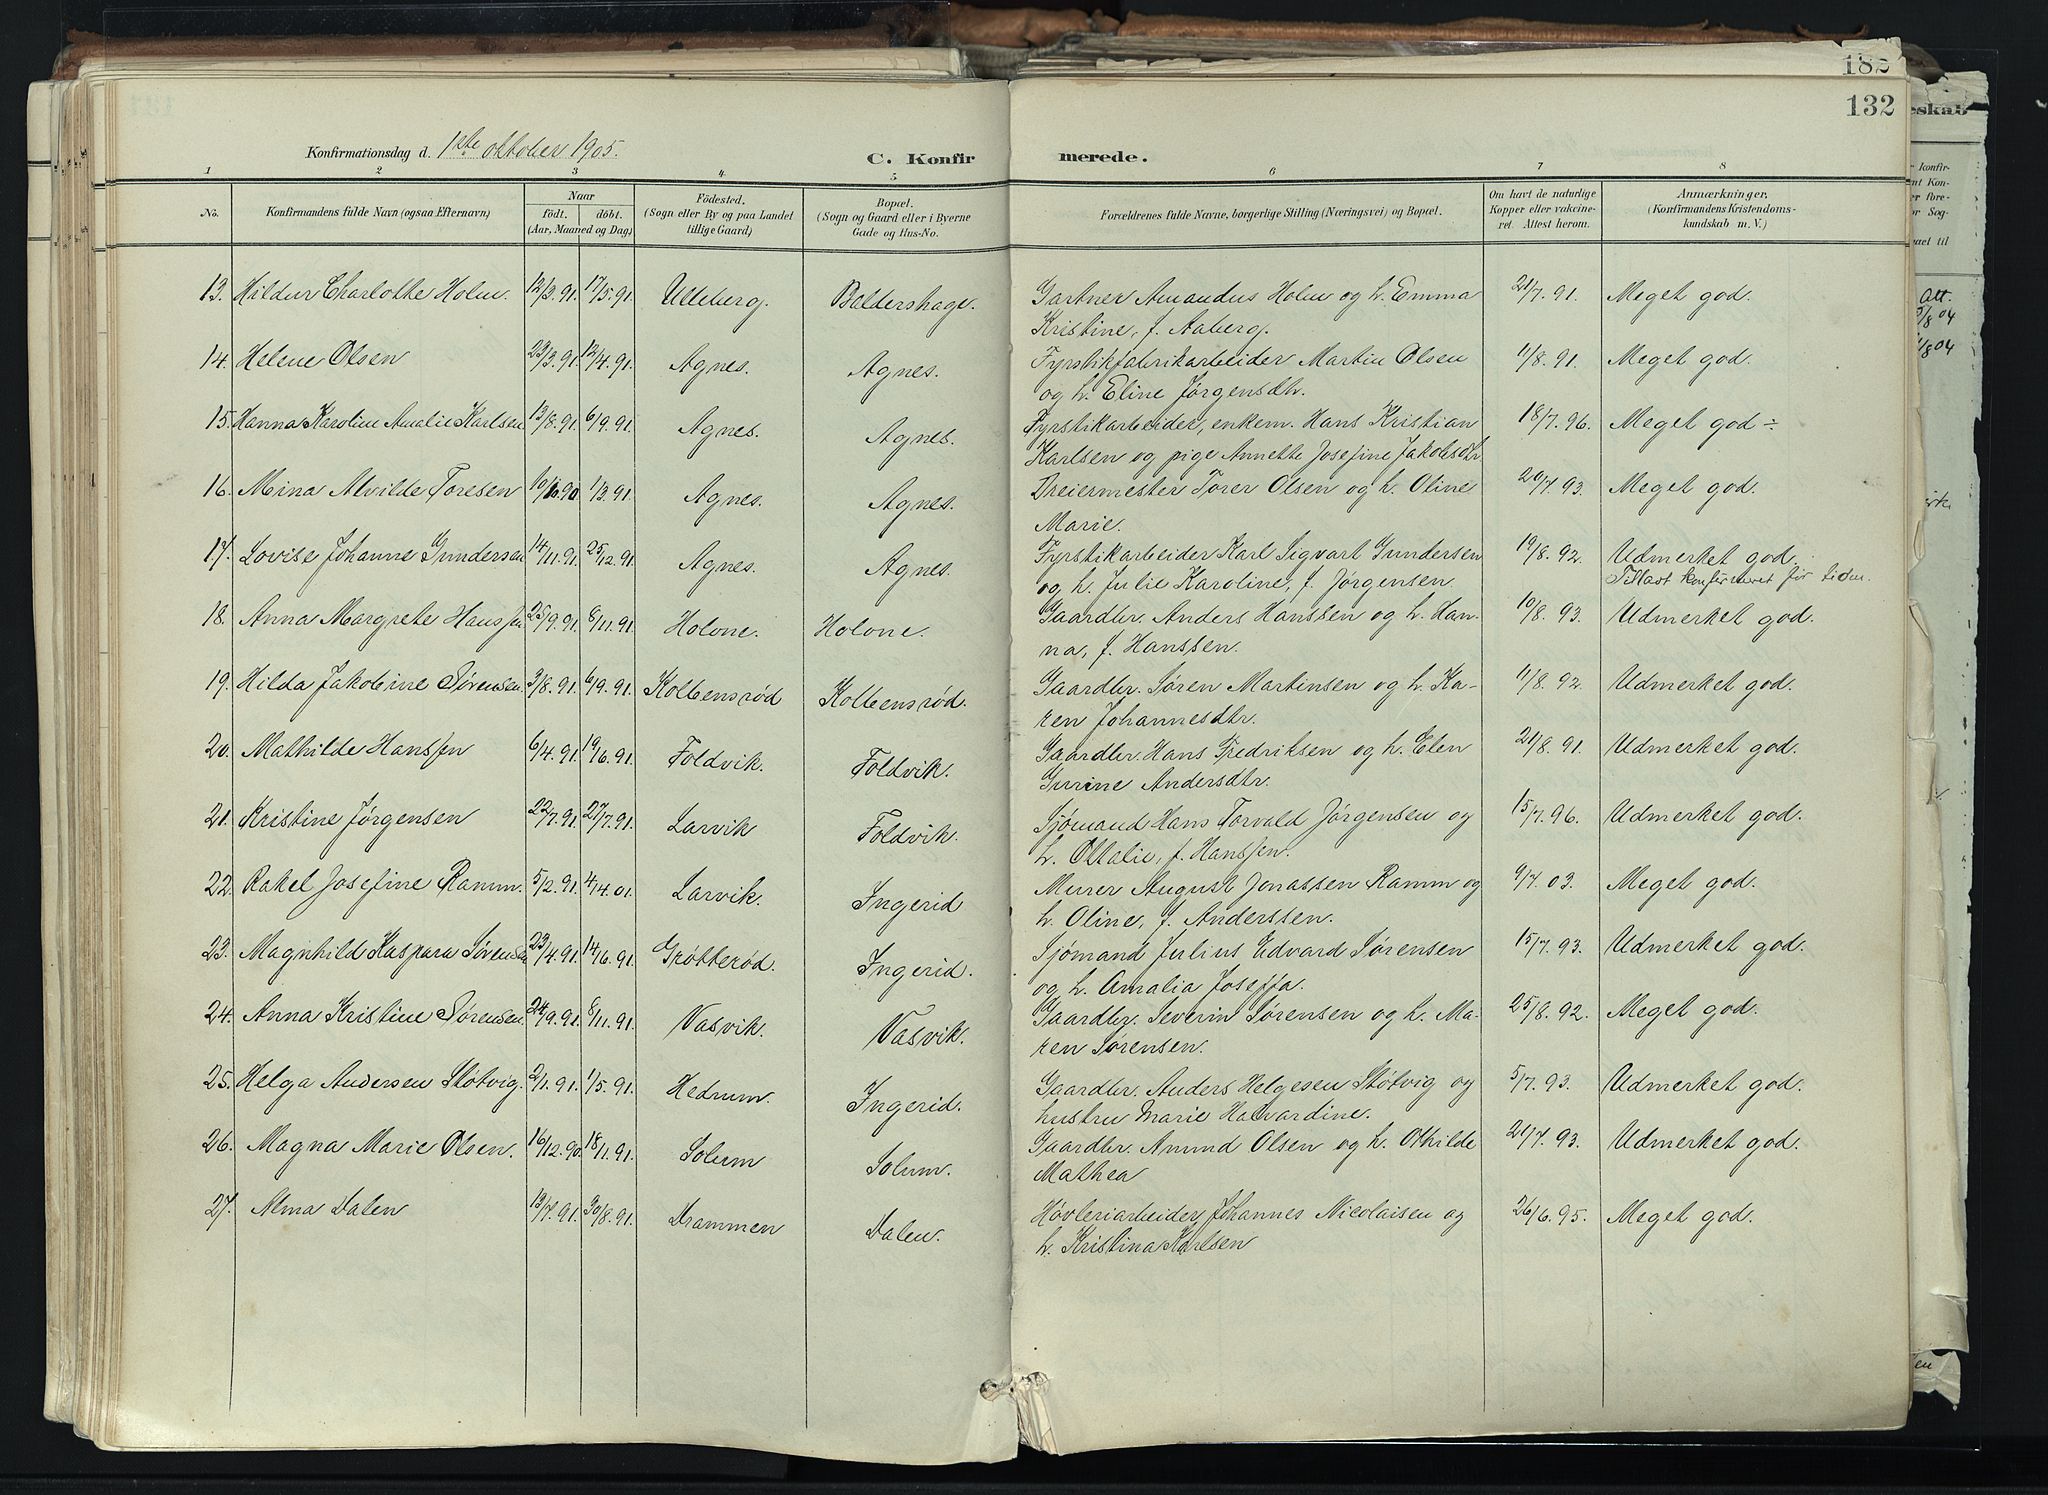 182
132
Konfirmationsdag d. 1ste oktober 1905.
C. Konfir
merede.
1 2 3 4. 5 6 7 8
No.
Konfirmandens fulde Navn (ogsaa Efternavn)
Naar
født. døbt.
(Aar, Maaned og Dag)
Fødested.
(Sogn eller By og paa Landet
tillige Gaard)
Bopæl.
(Sogn og Gaard eller i Byerne
Gade og Hus-No.
Forældrenes fulde Navne, borgerlige Stilling (Næringsvei) og Bopæl.
Om havt de naturlige
Kopper eller vaccine-
ret. Attest herom.
Anmærkninger.
(Konfirmandens Kristendoms-
kundskab m. V.)
13. Hildur Charlotte Holm. 12/3.91. 17/5.91. Ulleberg. Baldershage. Gartner Amandus Holm og h. Emma 21/7.91. Meget god.
Kristine, f. Aaberg.
14. Helene Olsen 23/3.91. 12/4.91. Agnes. Agnes. Fyrstikfabrikarbeider Martin Olsen 11/8.91. Meget god.
og h. Eline Jørgensdtr.
15. Hanna Karoline Amalie Karlsen 13/8.91. 6/9.91. Agnes. Agnes. Fyrstikarbeider, enkem. Hans Kristian 18/7.96. Meget god ÷
Karlsen og pige Annette Josefine Jakobsdtr.
16. Mina Alvilde Toresen 1/3.91. Agnes. Agnes. Dreiermester Torer Olsen og h. Oline 20/7.93. Meget god.
Marie.
17. Lovise Johanne Gundersen 14/11.91. 25/12.91. Agnes. Agnes. Fyrstikarbeider Karl Sigvart Gundersen 19/8.92. Udmerket god.
og h. Julie Karoline, f. Jørgensen. Tilladt konfirmeret før tiden.
18. Anna Margrete Hanssen 25/9.91. 8/11.91. Holone. Holone. Gaardbr. Anders Hanssen og h. Han- 10/8.93. Udmerket god.
na, f. Hanssen.
19. Hilda Jakobine Sørensen. 3/8.91. 6/9.91. Kolbensrød Kolbensrød. Gaardbr. Søren Martinsen og h. Ka- 11/8.92. Udmerket god.
ren Johannesdtr.
20. Mathilde Hanssen 6/4.91. 19/6.91. Foldvik. Foldvik. Gaardbr. Hans Fredriksen og h. Elen 21/8.91. Udmerket god.
Gurine Andersdtr.
21. Kristine Jørgensen 22/7.91. 27/7.91. Larvik Foldvik. Sjømand Hans Torvald Jørgensen og 15/7.96. Udmerket god.
h. Ottalie, f. Hanssen.
22. Rakel Josefine Ramm. 5/2.91. 4/4.01. Larvik. Ingerid Murer August Jonassen Ramm og 9/7.03. Meget god.
h. Oline, f. Anderssen.
23. Magnhild Kaspara Sørensen 23/4.91. 14/6.91. Grøtterød. Ingerid. Sjømand Julius Edvard Sørensen 15/7.93. Udmerket god.
og h. Amalia Joseffa.
24. Anna Kristine Sørensen. 24/9.91. 8/11.91. Vasvik. Vasvik. Gaardbr. Severin Sørensen og h. Ma- 25/8.92. Meget god.
ren Sørensen.
25. Helga Andersen Skøtvig. 2/1.91. 1/5.91. Hedrum. Ingerid. Gaardbr. Anders Helgesen Skøtvig og 5/7.93. Udmerket god.
hustru Marie Halvardine.
26. Magna Marie Olsen. 16/12.90. 18/1.91. Solum Solum. Gaardbr. Amund Olsen og h. Othilde 21/7.93. Udmerket god.
Mathea
27. Alma Dalen 13/7.91. 30/8.91. Drammen Dalen. Høvleriarbeider Johannes Nicolaisen og 26/6.95. Meget god.
h. Kristina Karlsen